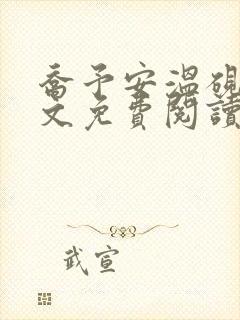 喬予安溫硯
文免費閱讀
武宣